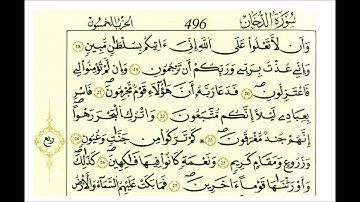 سُورَةُ الدُّخَانِ 496 الحِزْبُ الخَمْسُونَ
وَأَن لَّا تَعْلُوا عَلَى اَللَّهِ إِنِّيَ ءَاتِيكُم بِسُلْطَٰنٍ مُّبِينٍ ١٨
وَإِنِّي عُذْتُ بِرَبِّي وَرَبِّكُمُ أَن تَرْجُمُونِ ١٩ وَإِن لَّمْ تُومِنُوا لِي
فَاعْتَزِلُونِ ٢٠ فَدَعَا رَبَّهُ أَنَّ هَٰؤُلَاءِ قَوْمٌ مُّجْرِمُونَ ٢١ فَاسْرِ
بِعِبَادِي لَيْلاً اِنَّكُم مُّتَّبَعُونَ ٢٢ وَاتْرُكِ الْبَحْرَ رَهْواً
اِنَّهُمْ جُندٌ مُّغْرَقُونَ ٢٣ كَمْ تَرَكُوا مِن جَنَّٰتٍ وَعُيُونٍ ٢٤
وَزُرُوعٍ وَمَقَامٍ كَرِيمٍ ٢٥ وَنَعْمَةٍ كَانُوا فِيهَا فَٰكِهِينَ ٢٦ كَذَٰلِكَ
وَأَوْرَثْنَٰهَا قَوْماً ءَاخَرِينَ ٢٧ فَمَا بَكَتْ عَلَيْهِمُ السَّمَاءُ وَالْأَرْضُ
ربع